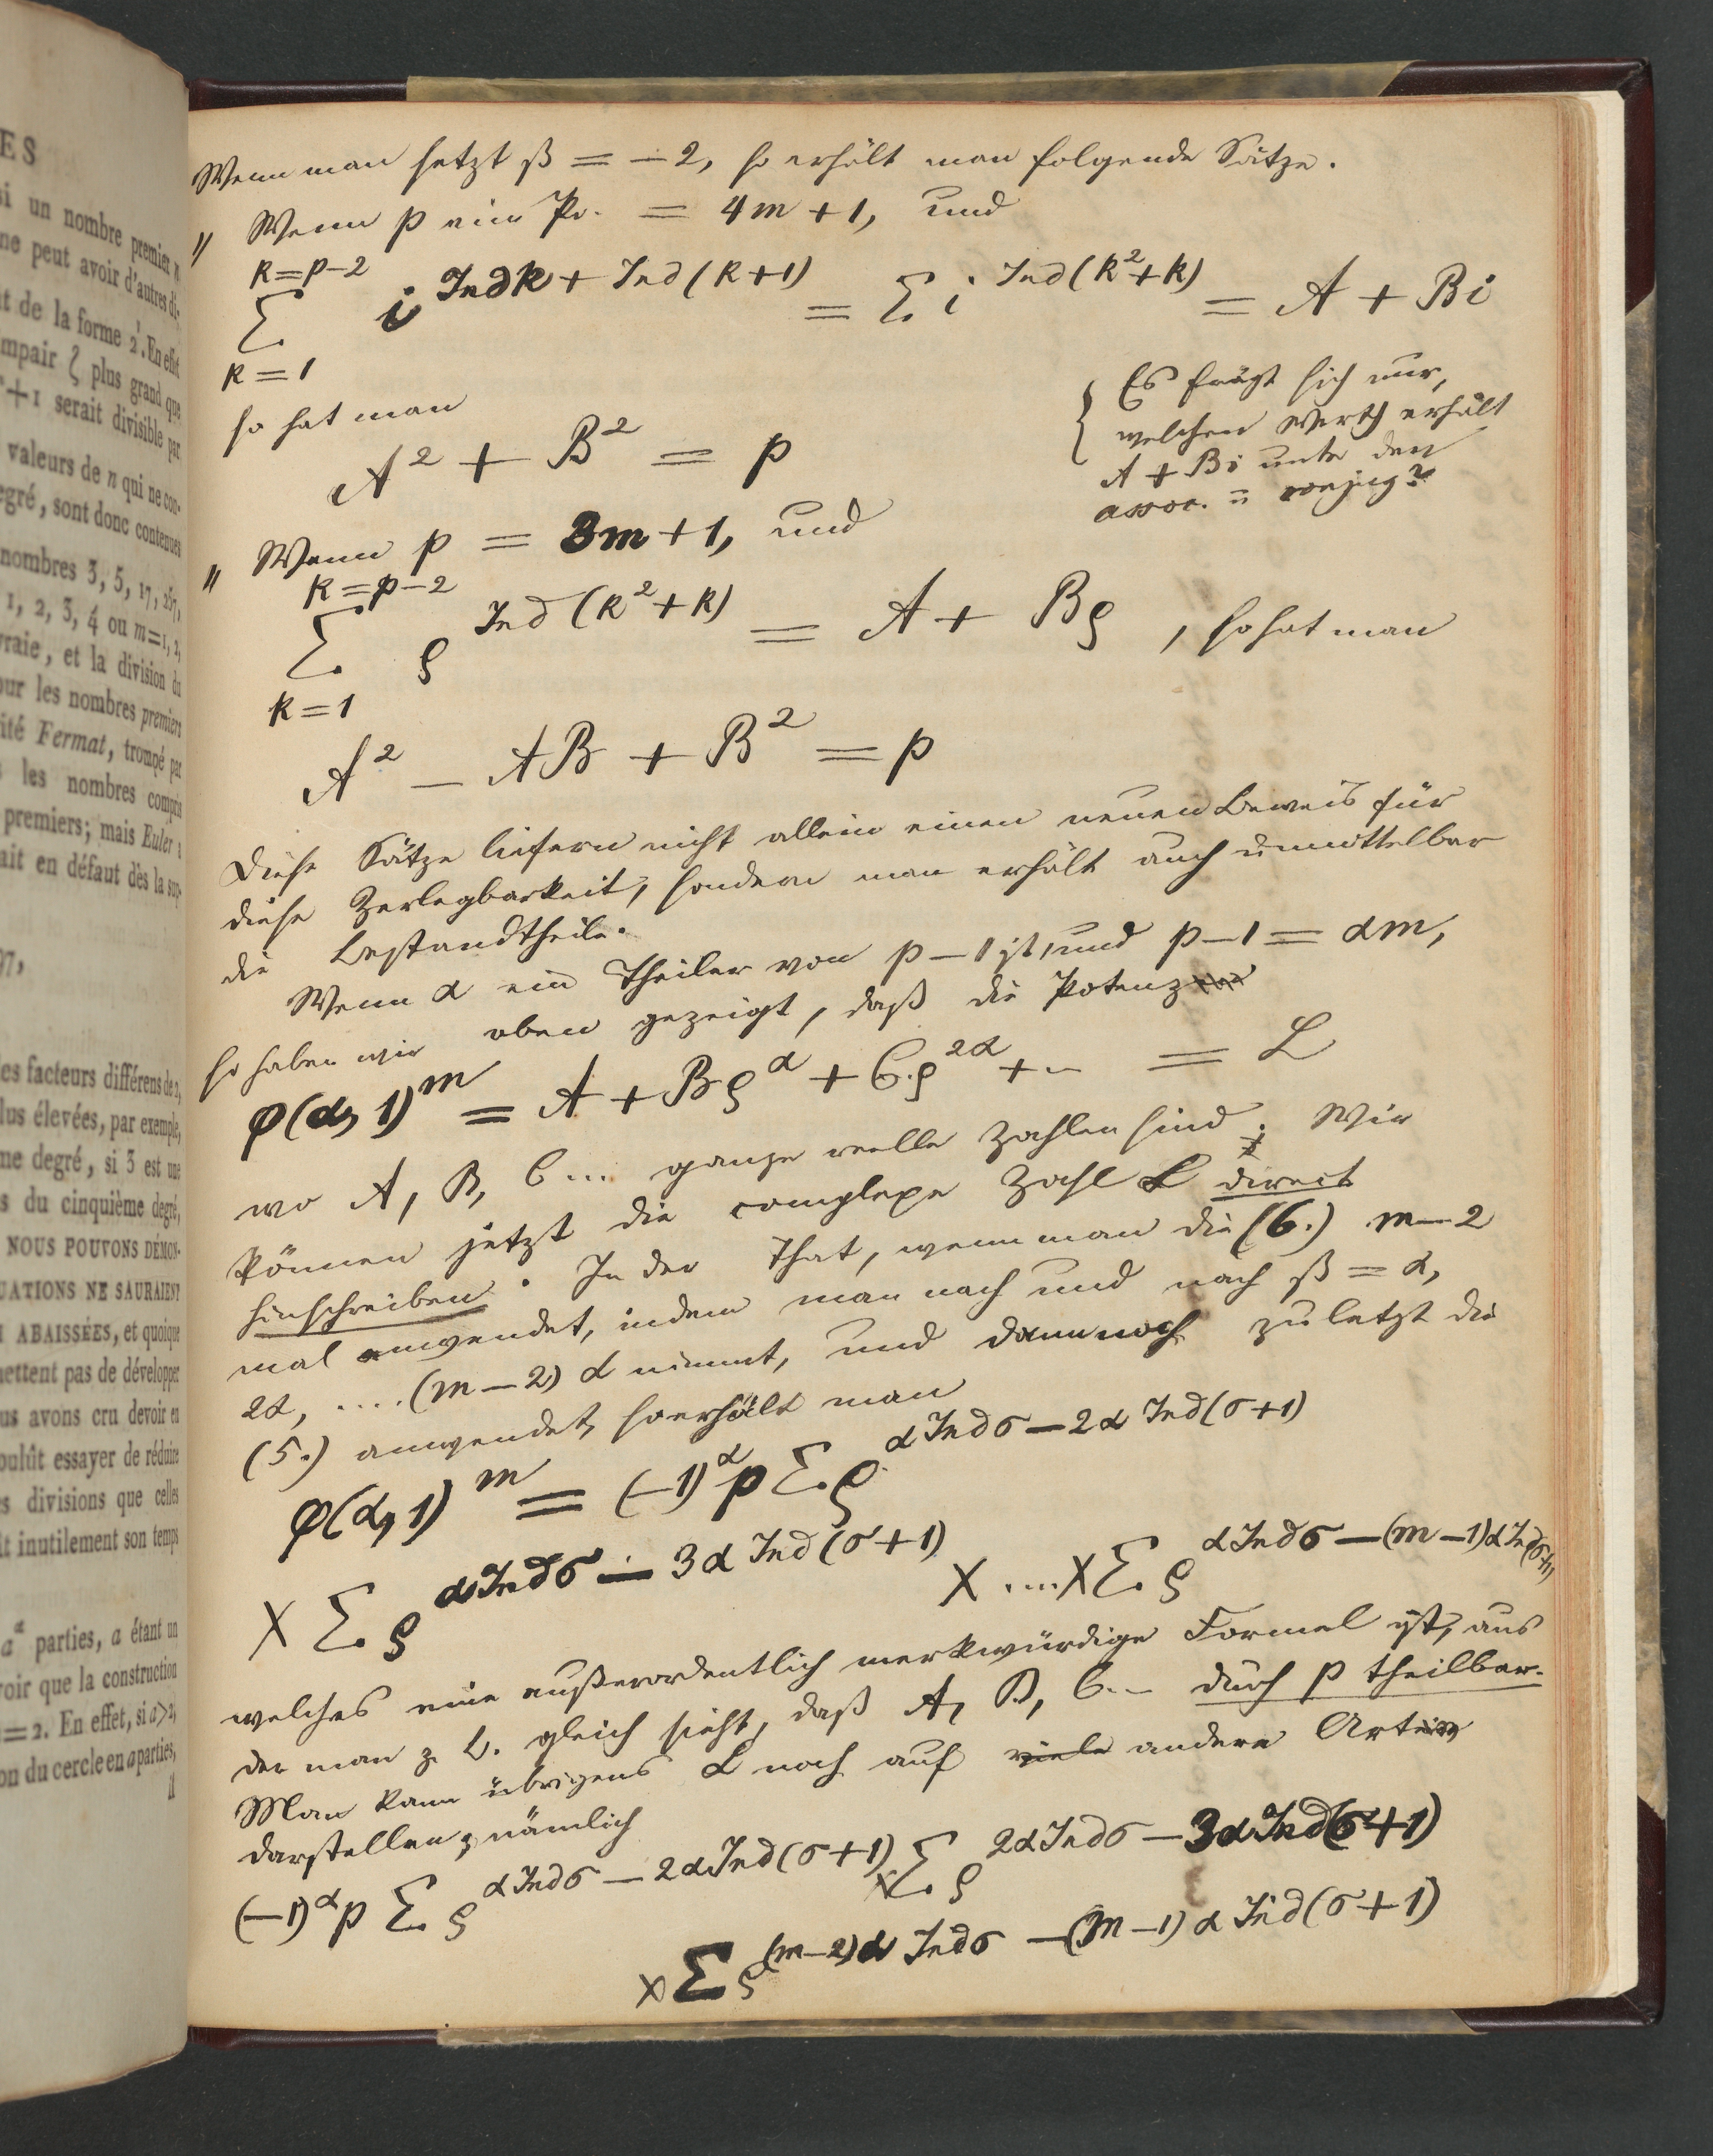 ES
si un nombre premier n
ne peut avoir d'autres di-
it de la forme 2
. En effet
impair ζ plus grand que
+1 serait divisible par
valeurs de n qui ne con-
egré, sont donc contenues
nombres 3, 5, 17, 257,
1, 2, 3, 4 ou m=1, 2,
vraie, et la division du
our les nombres premiers
ité Fermat, trompé par
les nombres compris
premiers; mais Euler a
ait en défaut dès la sup-
97,
les facteurs différens de 2,
lus élevées, par exemple,
me degré, si 3 est une
s du cinquième degré,
NOUS POUVONS DÉMON-
UATIONS NE SAURAIENT
I ABAISSÉES, et quoique
mettent pas de développer
us avons cru devoir en
oulût essayer de réduire
s divisions que celles
it inutilement son temps
aᵅ parties, a étant un
voir que la construction
=2. En effet, si a>2,
on du cercle en a parties,
Wenn man setzt ß = −2, so erhält man folgende Sätze.
„ Wenn p ein Pr. = 4m+1, und
k=p−2
Σ i^{Ind k + Ind(k+1)} = Σ i^{Ind(k²+k)} = A + Bi
k=1
so hat man
A² + B² = p
{ Es frägt sich nur,
welchen Werth erhält
A + Bi unter den
assoc. u conjug?
„ Wenn p = 3m+1, und
k=p−2
Σ ρ^{Ind(k²+k)} = A + Bρ, so hat man
k=1
A² − AB + B² = p
Diese Sätze liefern nicht allein einen neuen Beweis für
diese Zerlegbarkeit, sondern man erhält auch unmittelbar
die Bestandtheile.
Wenn α ein Theiler von p−1 ist, und p−1 = αm,
so haben wir oben gezeigt, daß die Potenz
φ(α, 1)^m = A + Bρ^α + C.ρ^{2α} + ... = L
wo A, B, C... ganze reelle Zahlen sind. Wir
können jetzt die complexe Zahl L direct
hinschreiben. In der That, wenn man die (6.) m−2
mal anwendet, indem man nach und nach ß = α,
2α, ....(m−2)α nimmt, und dann noch zuletzt die
(5.) anwendet, so erhält man
φ(α, 1)^m = (−1)^α p Σ ρ^{α Ind σ − 2α Ind(σ+1)}
X Σ ρ^{α Ind σ − 3α Ind(σ+1)} X ....X Σ ρ^{α Ind σ − (m−1)α Ind(σ+1)}
welches eine außerordentlich merkwürdige Formel ist, aus
der man z. B. gleich sieht, daß A, B, C... durch p theilbar.
Man kann übrigens L noch auf viele andere Arten
darstellen, nämlich
(−1)^α p Σ ρ^{α Ind σ − 2α Ind(σ+1)} X Σ ρ^{2α Ind σ − 3α Ind(σ+1)}
X Σ ρ^{(m−2)α Ind σ − (m−1)α Ind(σ+1)}